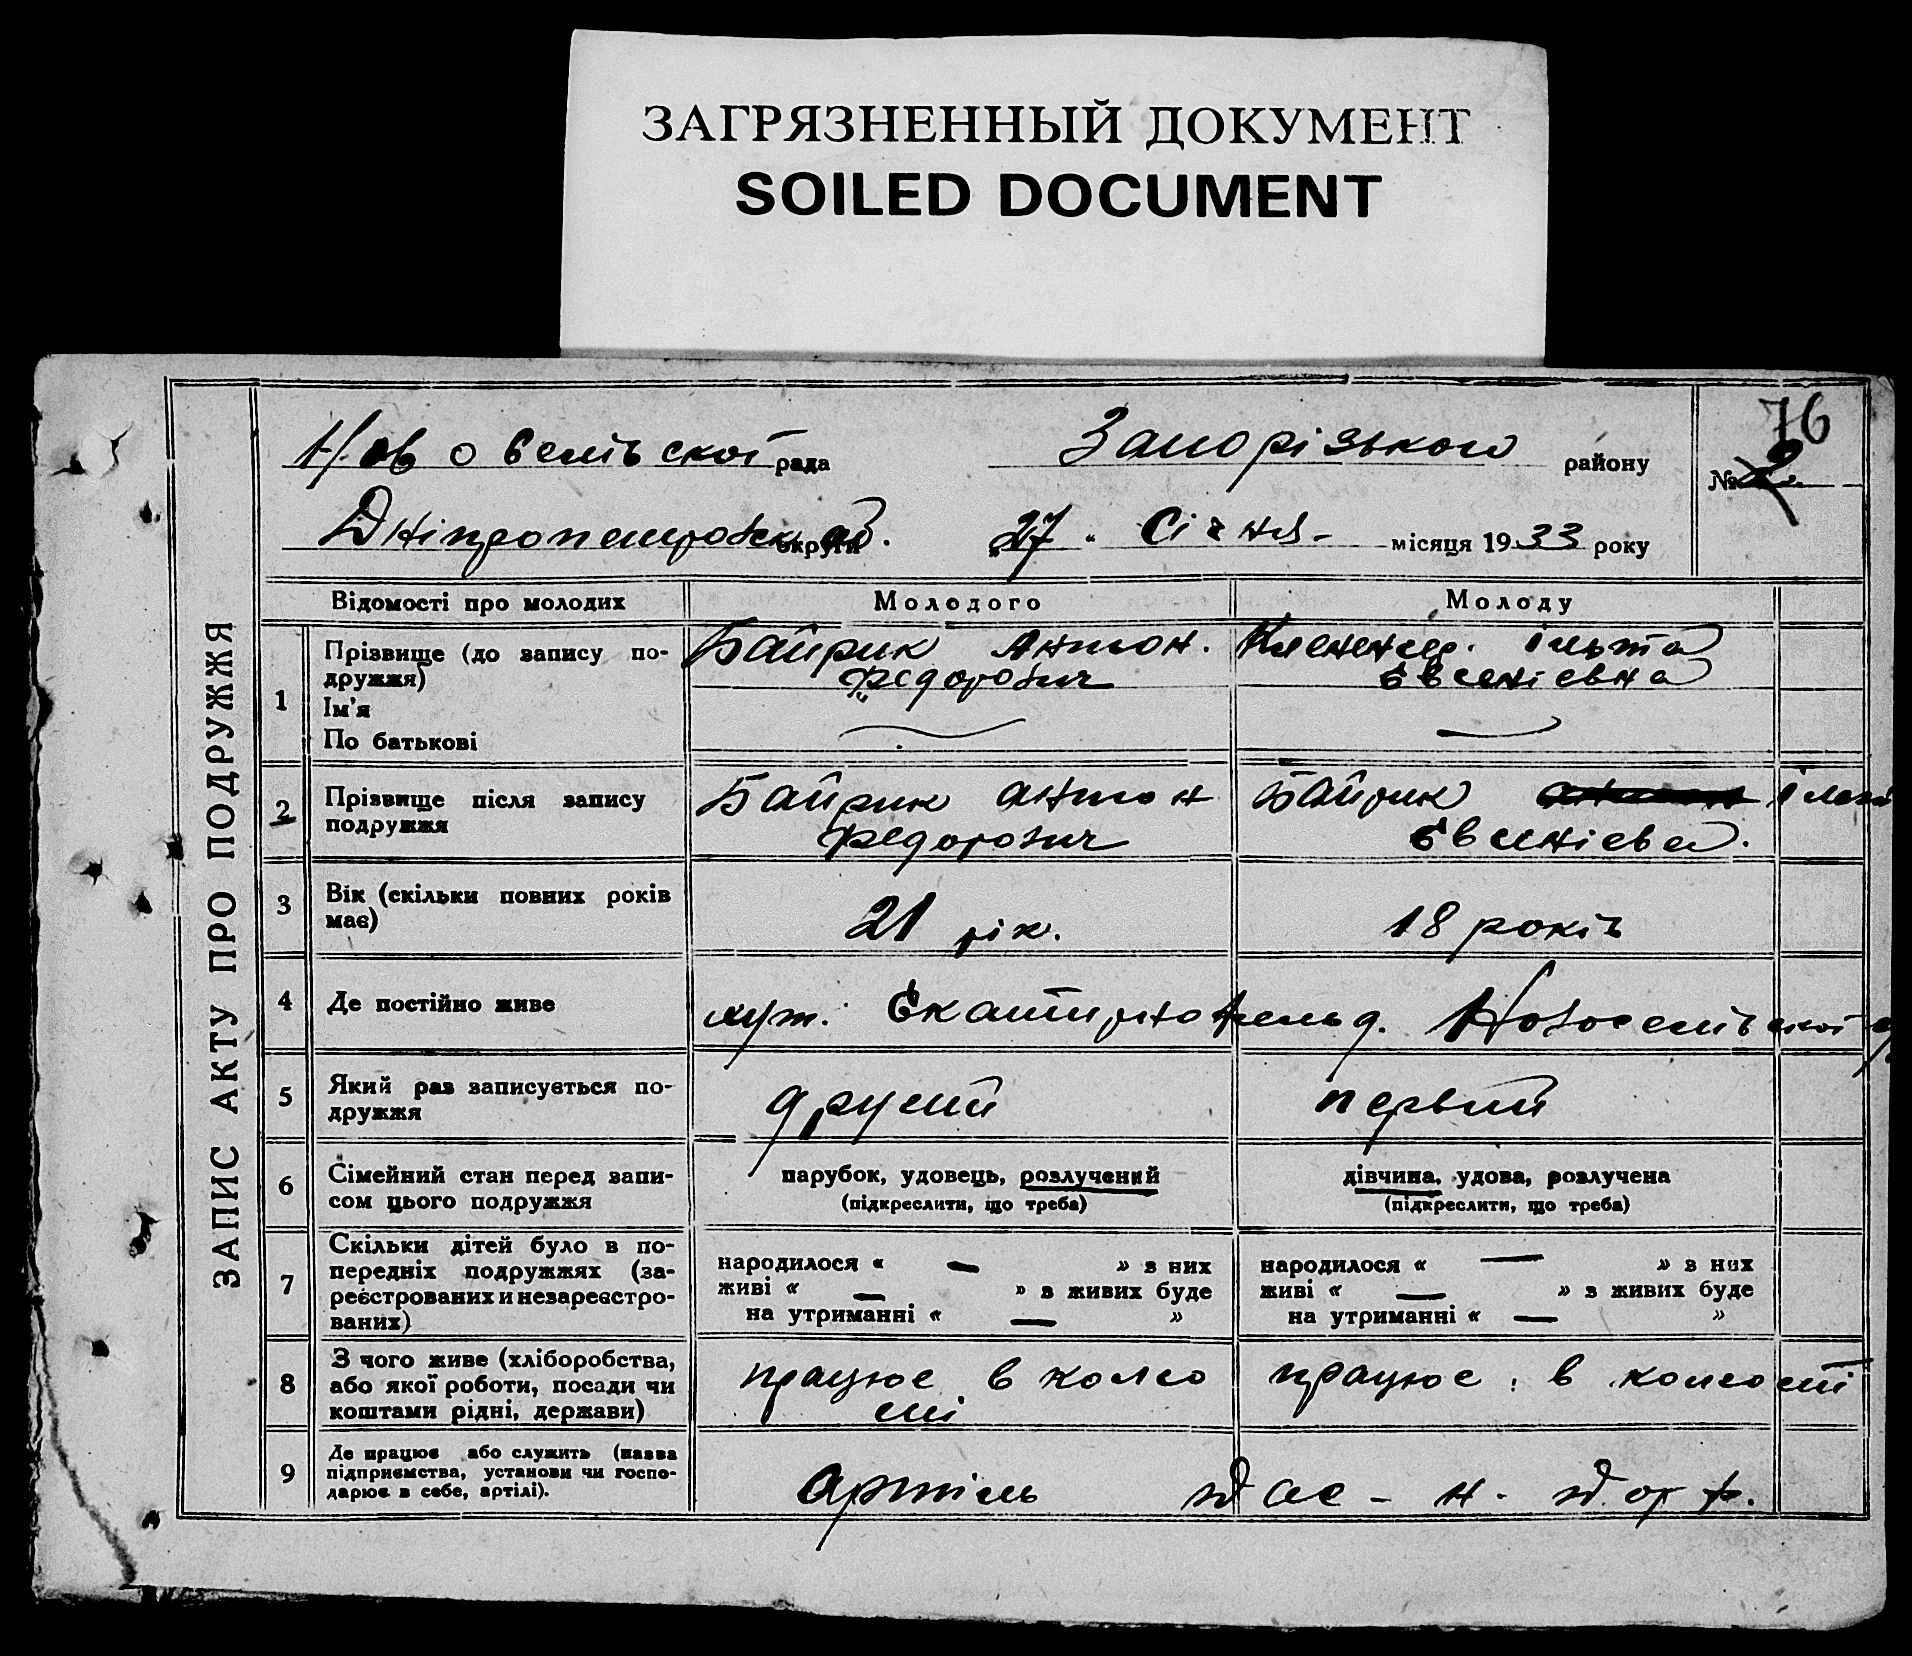 ЗАГРЯЗНЕННЫЙ ДОКУМЕНТ
SOILED DOCUMENT
ЗАПИС АКТУ ПРО ПОДРУЖЖЯ
76
Запорізького району
рада
№ 2
округи 27 Січня місяця 1933 року
Відомості про молодих Молодого Молоду
1 Прізвище (до запису по-
дружжя)
Ім'я
По батькові
Байрик Антон.
Федорович
Євгенієвна
2 Прізвище після запису
подружжя
Байрик Антон
Федорович
Байрик
3 Вік (скільки повних років
має)
21 рік. 18 років
4 Де постійно живе
хут.
5 Який раз записується по-
дружжя
другий первий
6 Сімейний стан перед запи-
сом цього подружжя
парубок, удовець, розлучений
(підкреслити, що треба)
дівчина, удова, розлучена
(підкреслити, що треба)
7 Скільки дітей було в по-
передніх подружжях (за-
реєстрованих и незареєстро-
ваних)
народилося « — » в них
живі « — » в живих буде
на утриманні « — »
народилося « — » в них
живі « — » в живих буде
на утриманні « — »
8 З чого живе (хліборобства,
або якої роботи, посади чи
коштами рідні, держави)
працює в колго
спі
працює в колгоспі
9 Де працює або служить (назва
підприємства, установи чи госпо-
дарює в себе, артілі).
Артіль